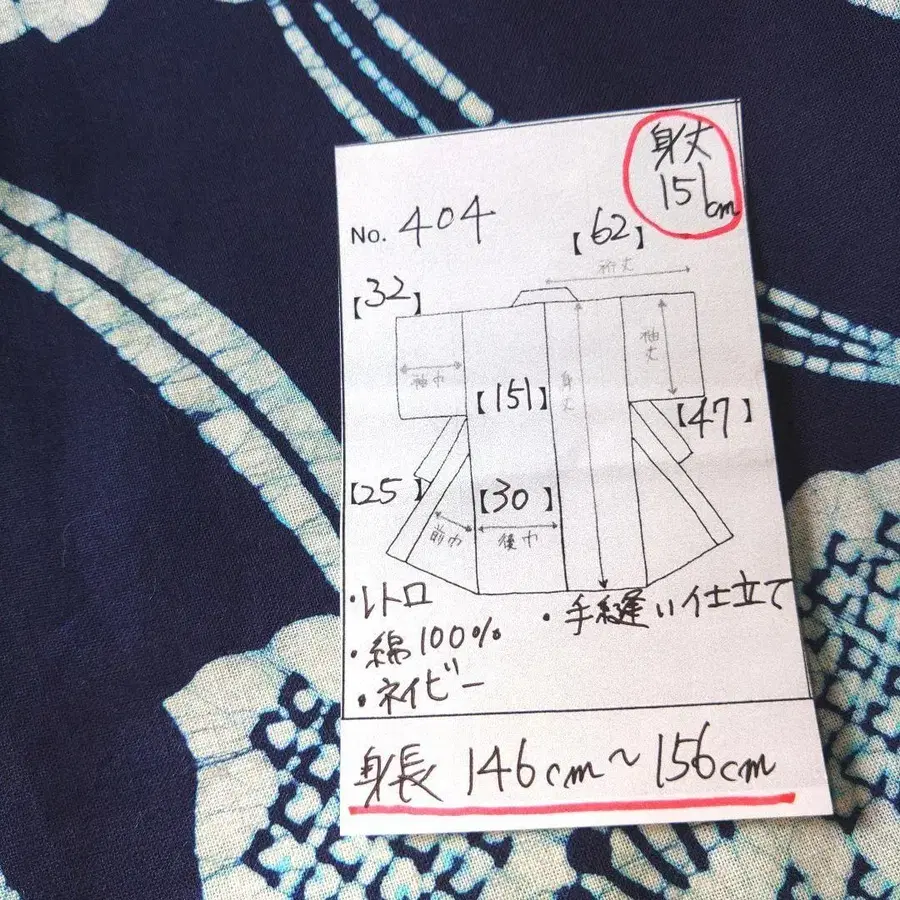 身丈
151cm
No. 404
【62】
裄丈
【32】
袖巾
袖丈
身丈
【151】
【47】
【25】
【30】
前巾
後巾
・レトロ
・手縫い仕立て
・綿100%
・ネイビー
身長 146cm~156cm